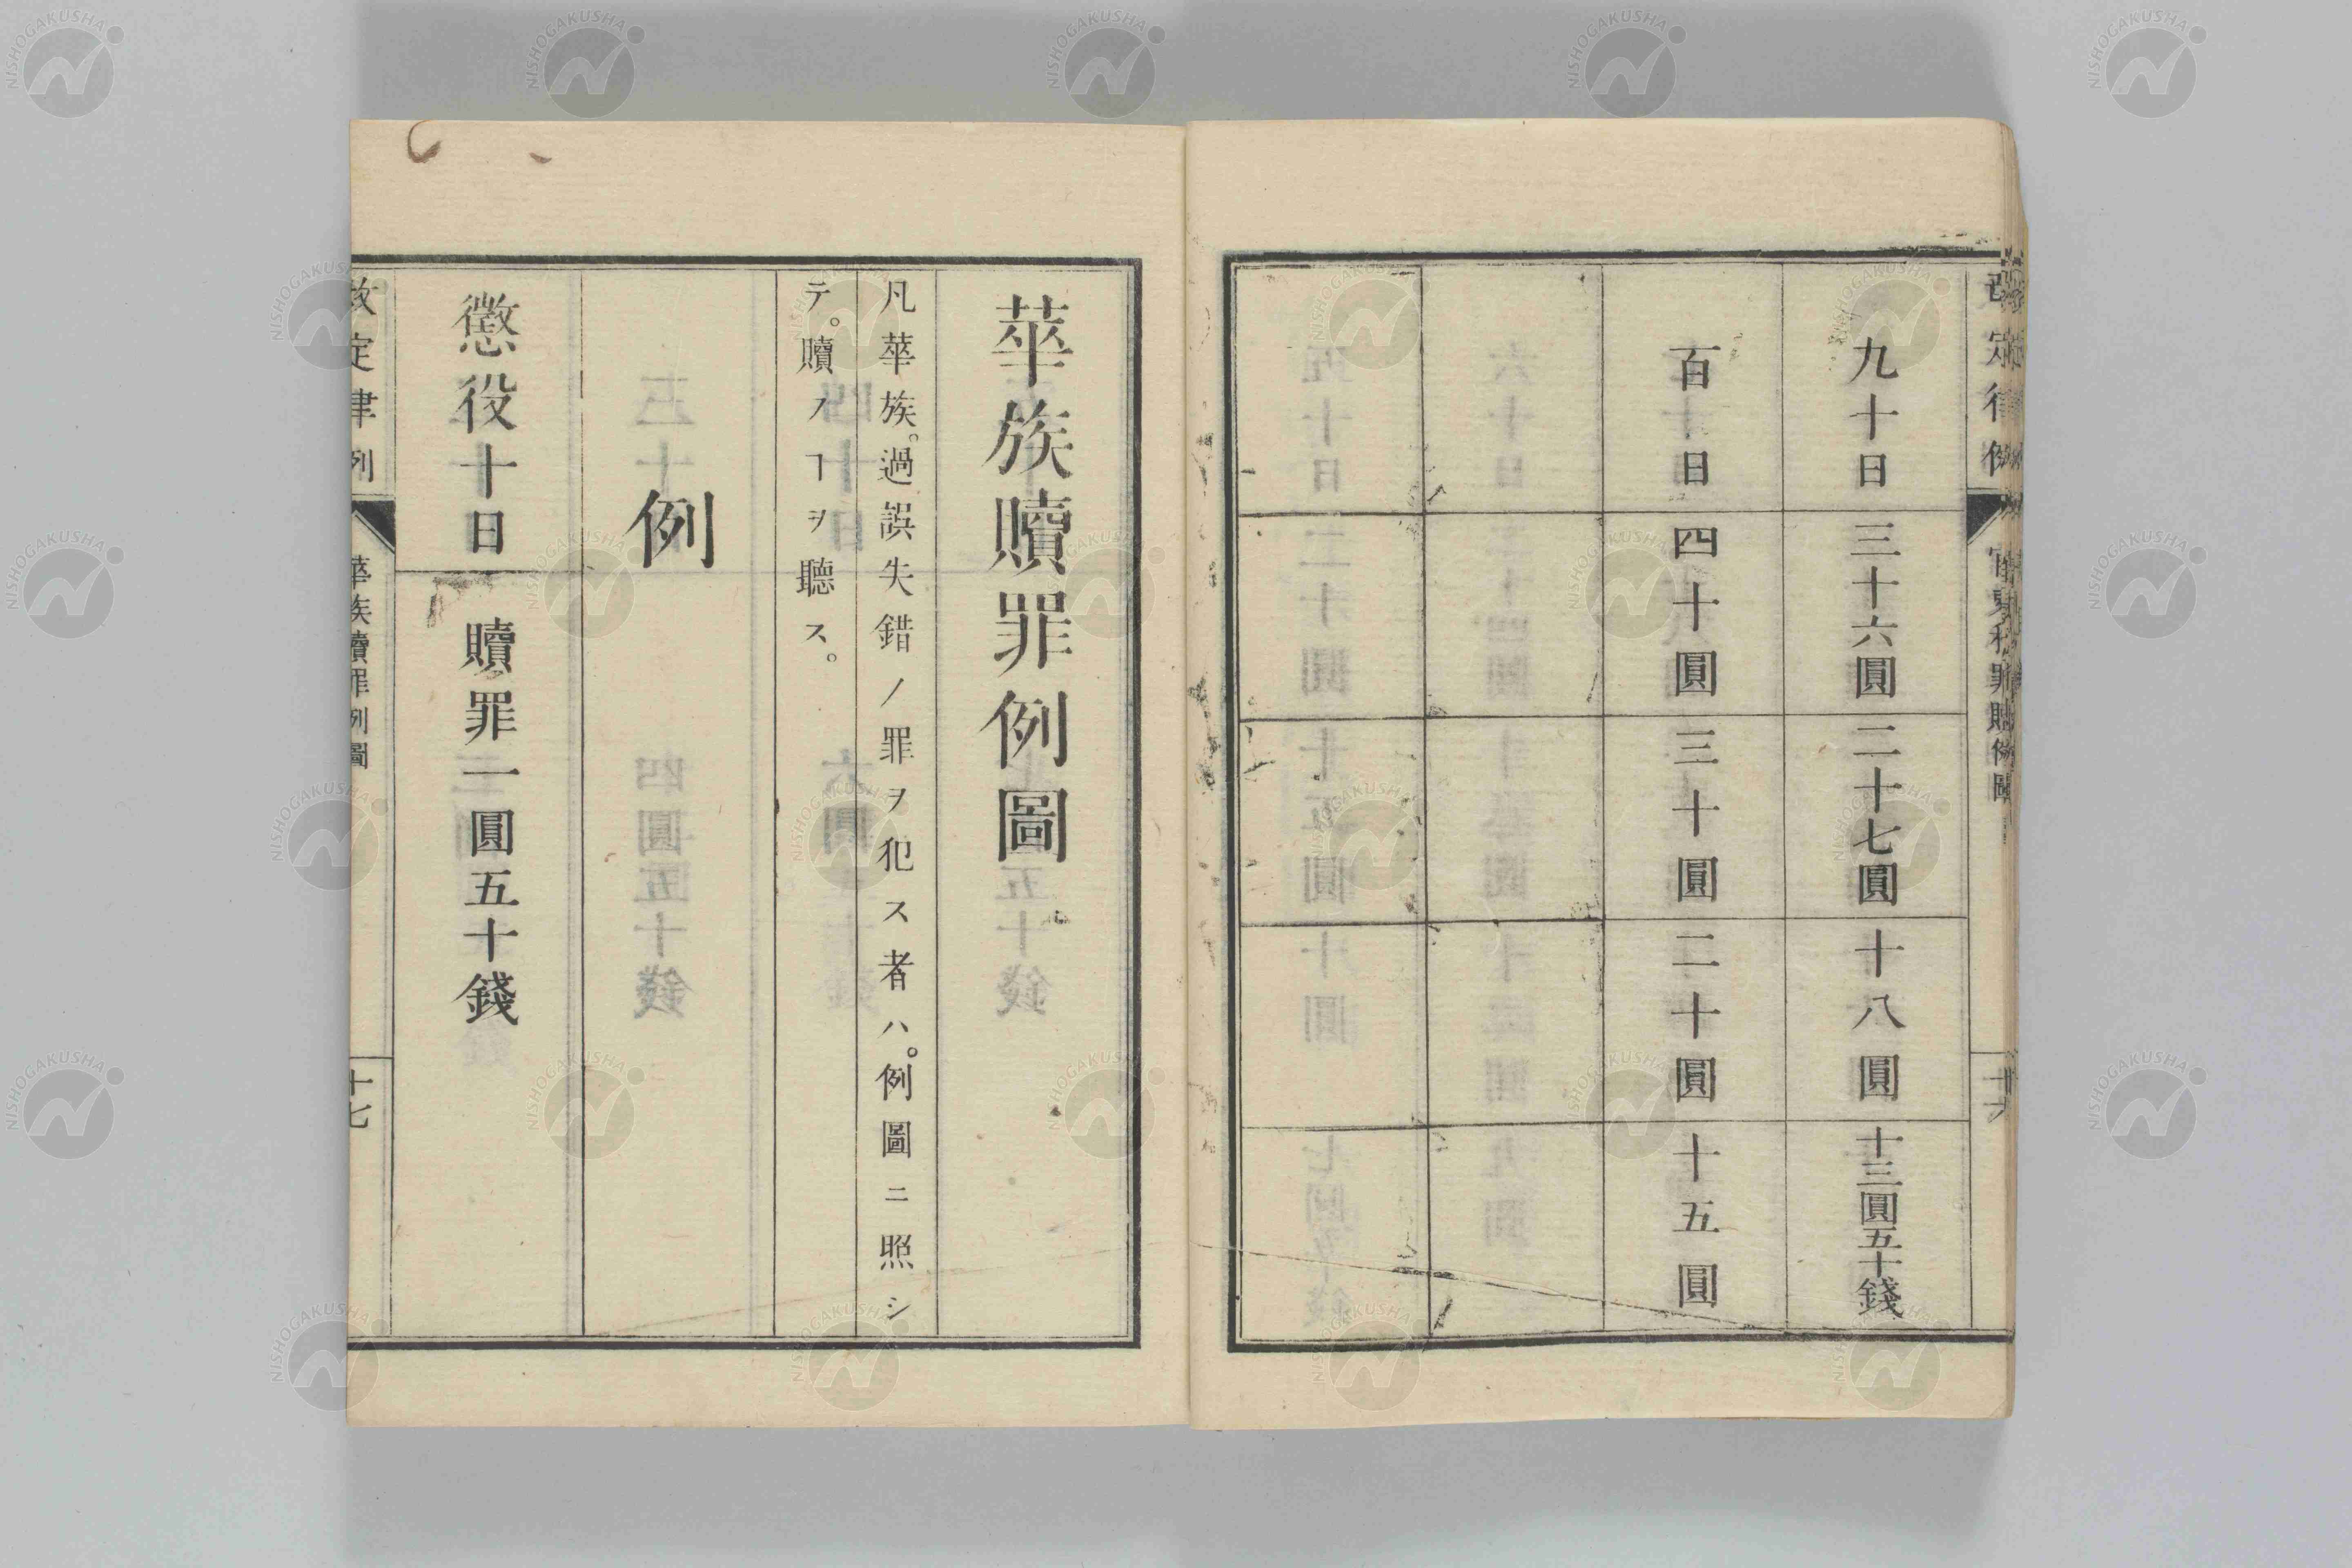 改定律例
官吏私罪贖例圖
十六
九十日 三十六圓 二十七圓 十八圓 十三圓五十錢
百日 四十圓 三十圓 二十圓 十五圓
華族贖罪例圖。
凡華族。過誤失錯ノ罪ヲ犯ス者ハ。例圖ニ照シ
テ。贖フヿヲ聽ス。
例
懲役十日 贖罪一圓五十錢
改定律例
華族贖罪例圖
十七
NISHOGAKUSHA